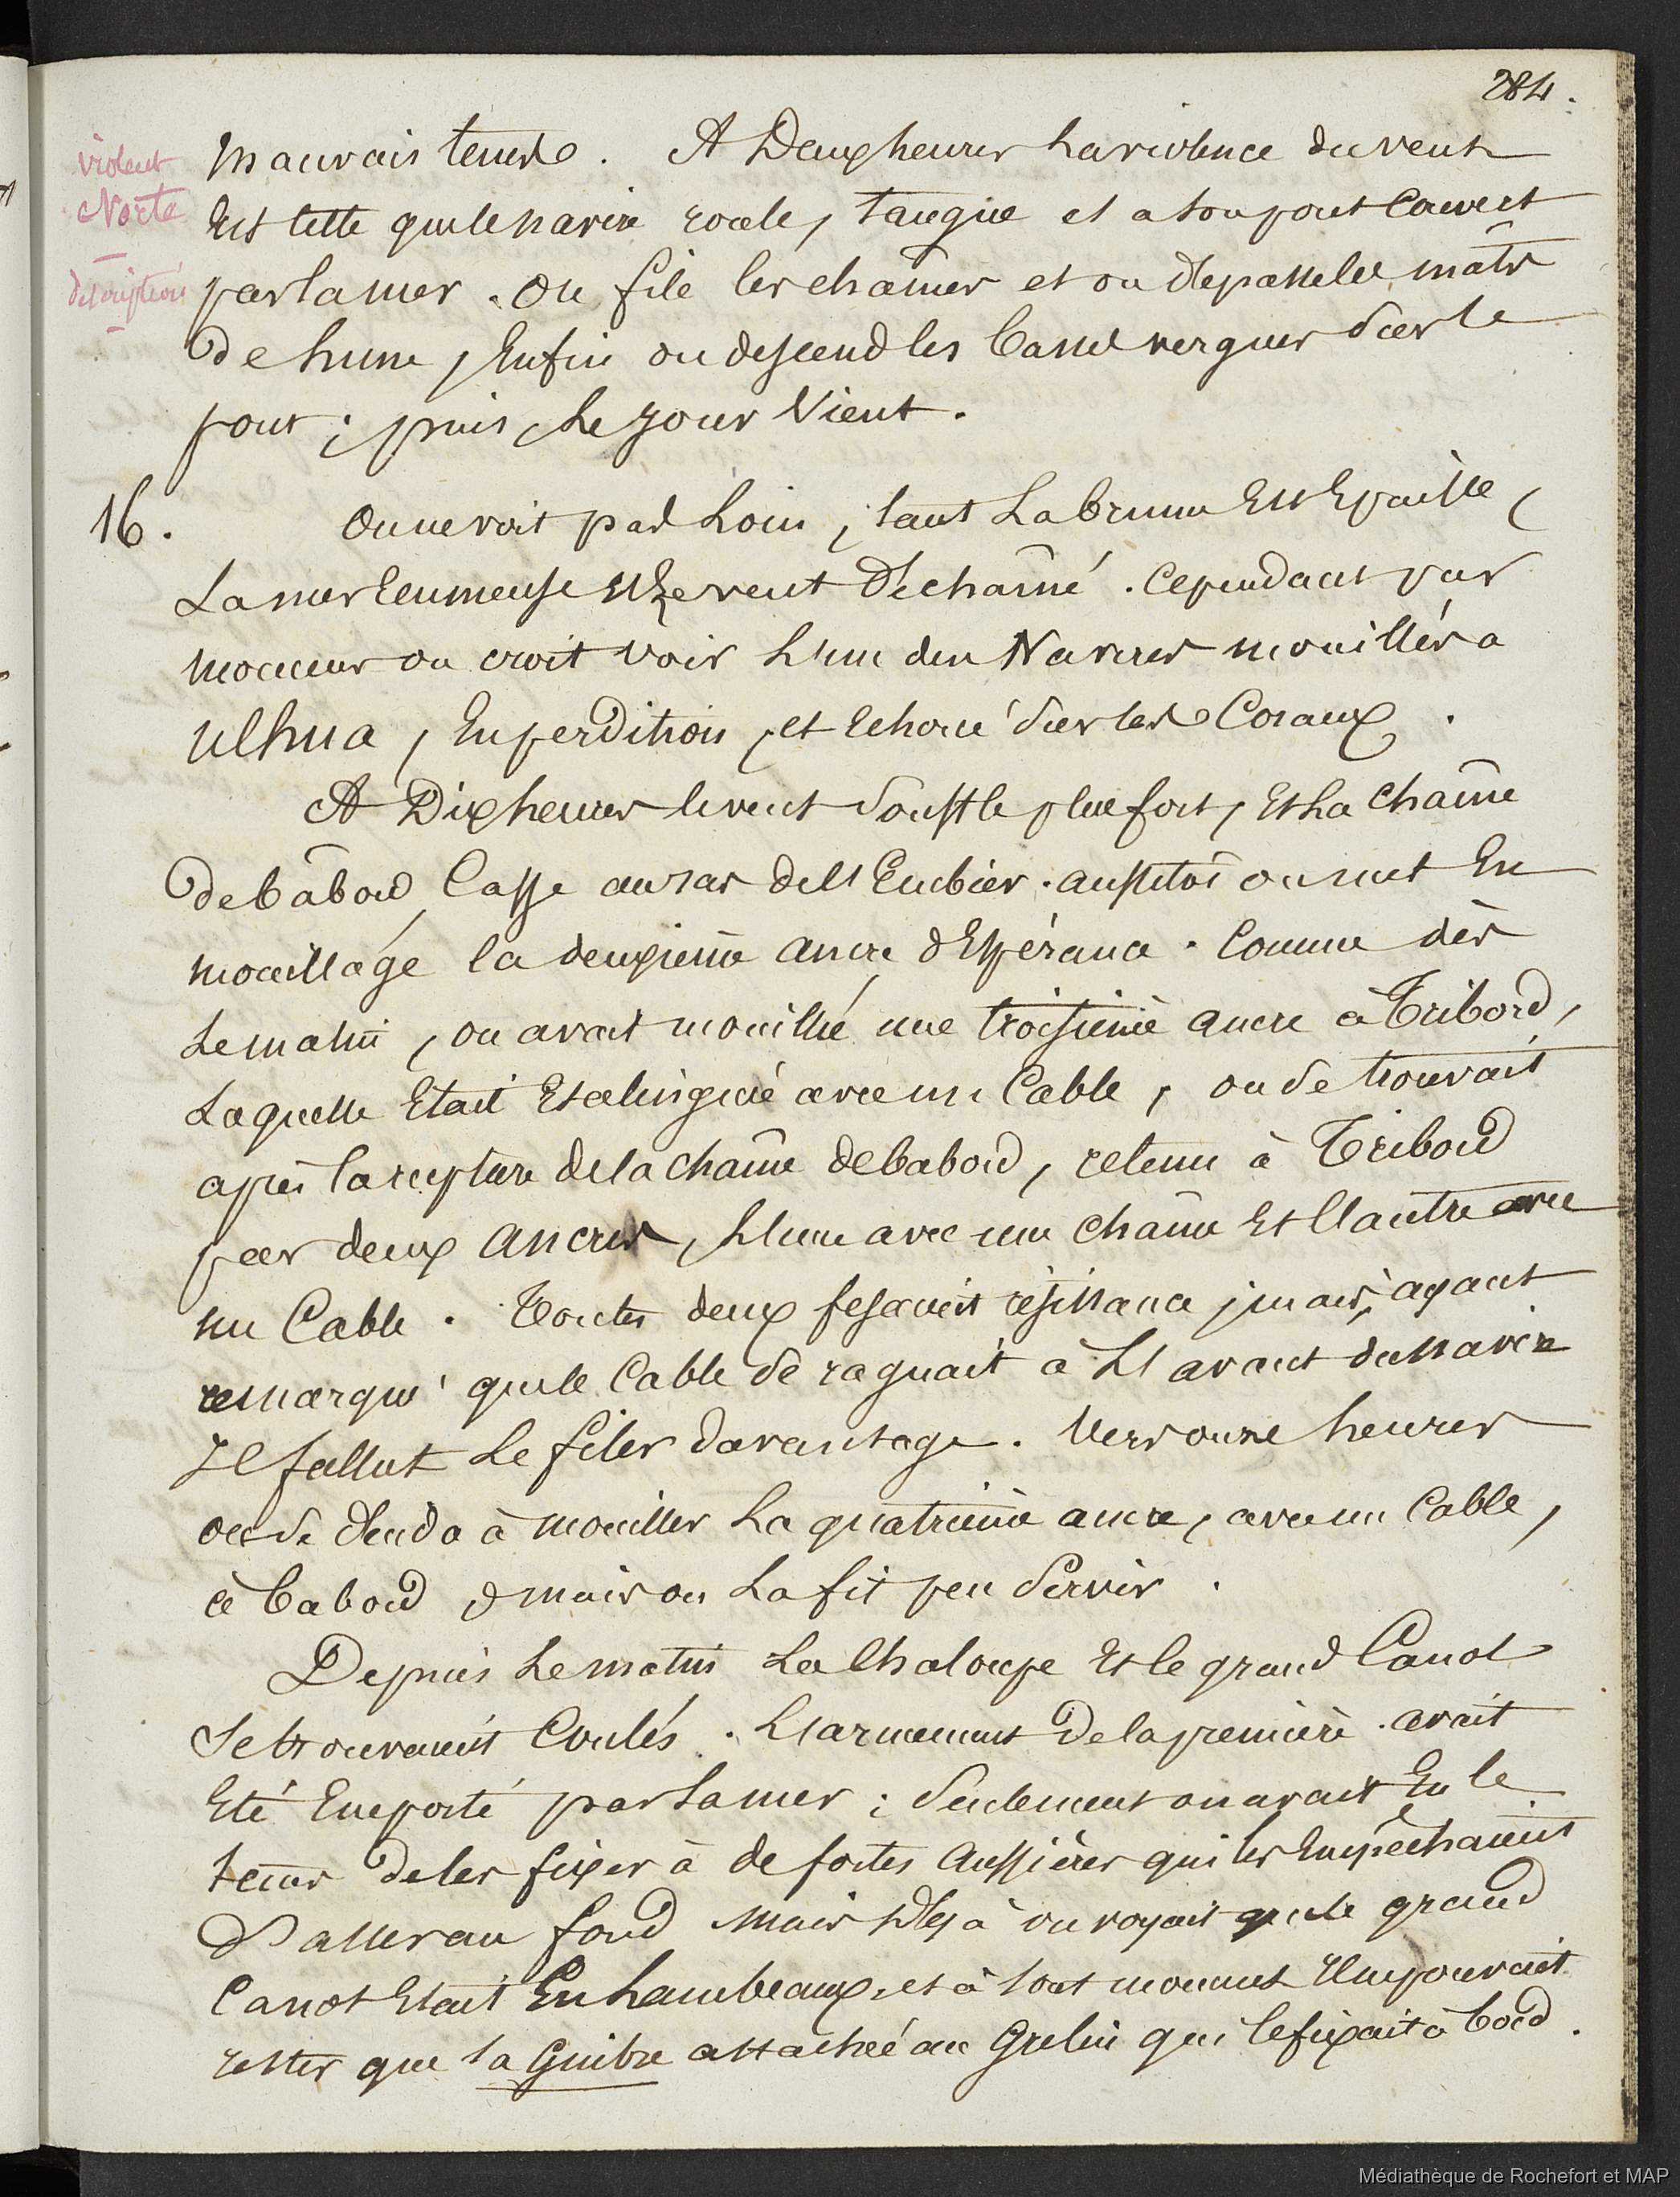 284.
violent
Norte
description
mauvais temps. A Deux heures La violence du vent
Est telle que le navire roule, tangue et a son pont Couvert
par la mer. On file les chaînes et on dépasse les mâts
de hune, Enfin on descend les basses vergues sur le
pont; puis, Le jour Vient.
16. On ne voit pas Loin, tant La brume Est Epaisse,
La mer Ecumeuse et Le vent Déchaîné. Cependant par
moments on croit voir L'un des Navires mouillés a
Ulhua, En perdition, et Echoué sur les Coraux.
A Dix heures le vent Souffle plus fort, Et La chaîne
de bâbord, Casse au ras de l'Ecubier. aussitôt on met En
mouillage la deuxième ancre d'Espérance. Comme dès
Le matin, on avait mouillé une troisième ancre à Tribord,
Laquelle Etait Etalinguée avec un Cable, on se trouvait
après la rupture de la chaîne de babord, retenu à Tribord
par deux ancres, L'une avec une chaîne Et l'autre avec
un Cable. Toutes deux fesaient résistance; mais, ayant
remarqué que le Cable se raguait à L'avant du navire
Il fallut Le filer davantage. Vers onze heures
on se décida à mouiller La quatrième ancre, avec un Cable,
à babord, mais on La fit peu Servir.
Depuis Le matin La Chaloupe Et le grand Canot
Se trouvaient Coulés. L'armement De la première avait
Eté Emporté par la mer; Seulement on avait Eu le
tems de les fixer à de fortes Aussières qui les Empêchaient
D'aller au fond mais Déjà on voyait que le grand
Canot Etait En Lambeaux, et à tout moment Il ne pouvait
rester que la Guibre attachée au Grelin qui le fixait à bord.
Médiathèque de Rochefort et MAP